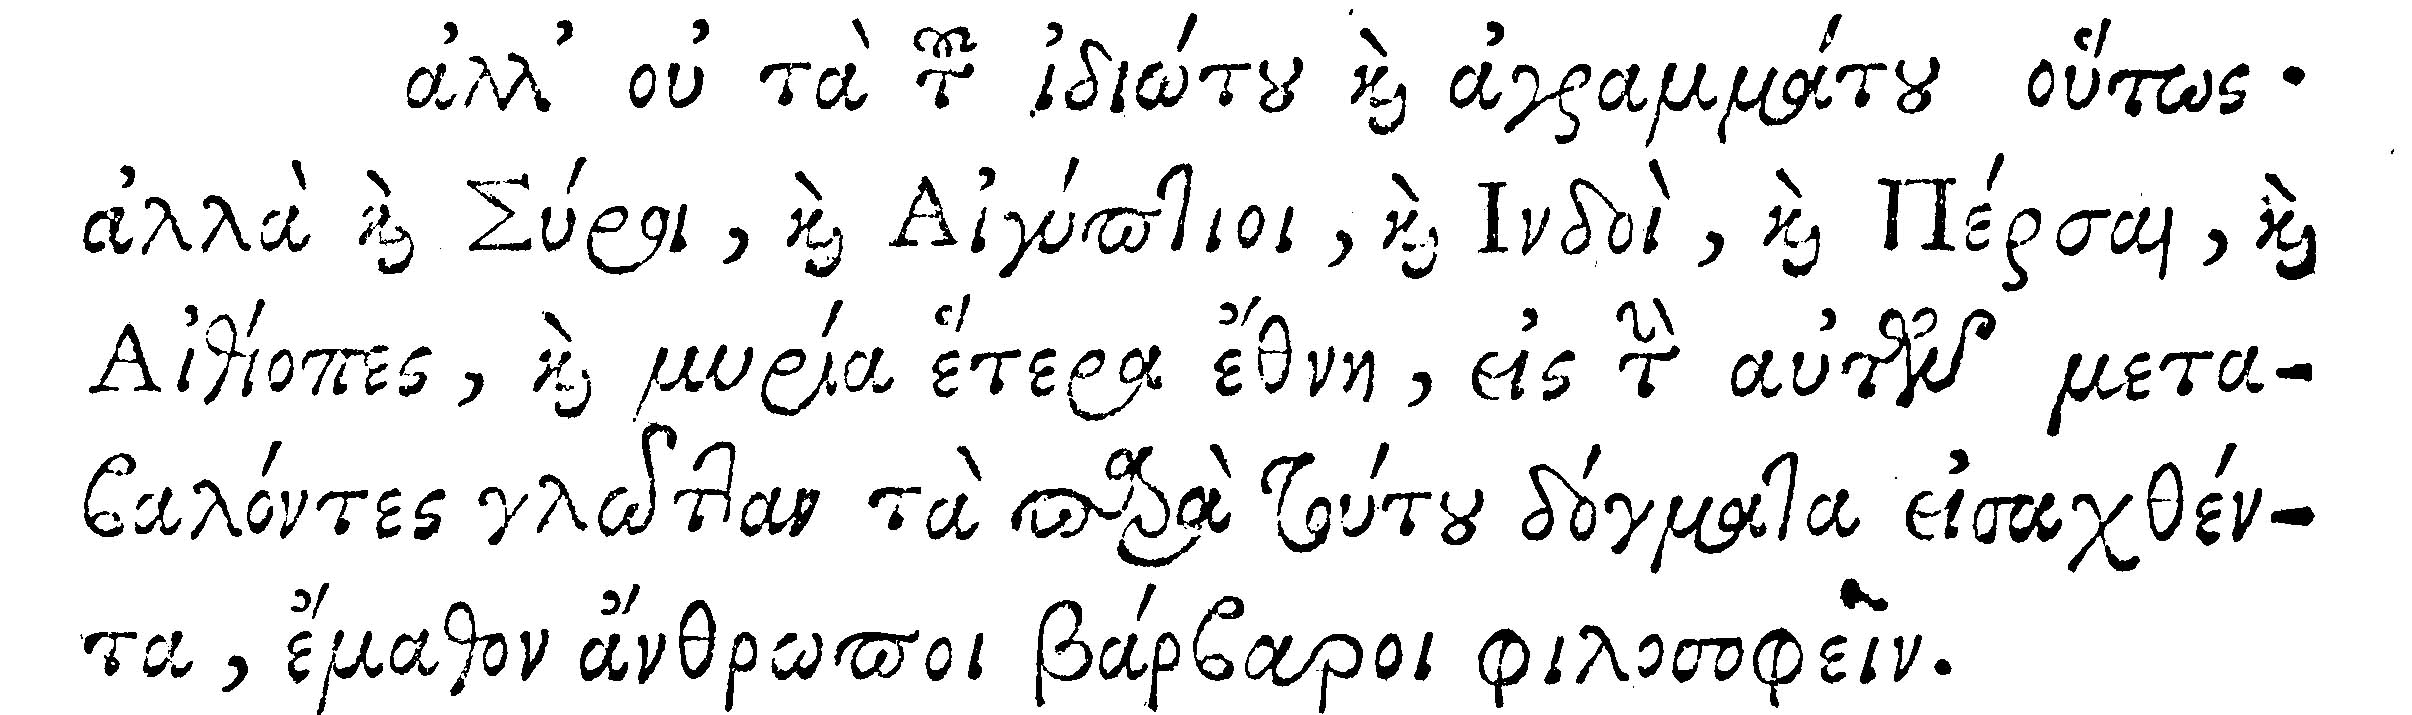 ἀλλ’ οὐ τὰ τοῦ ἰδιώτου καὶ ἀγραμμάτου οὕτως·
ἀλλὰ καὶ Σύροι, καὶ Αἰγύπτιοι, καὶ Ινδοὶ, καὶ Πέρσαι, καὶ
Αἰθίοπες, καὶ μυρία ἕτερα ἔθνη, εἰς τὴν αὐτῶν μετα-
βαλόντες γλῶτταν τὰ παρὰ τούτου δόγματα εἰσαχθέν-
τα, ἔμαθον ἄνθρωποι βάρβαροι φιλοσοφεῖν.